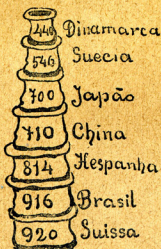 446 Dinamarca
546 Suecia
700 Japão
710 China
814 Hespanha
916 Brasil
920 Suissa